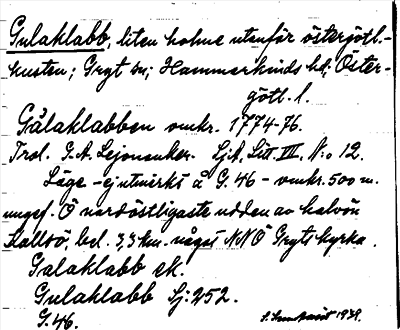 Gulaklabb, liten holme utanför östergötl.-
kusten; Gryt sn; Hammarkinds hd; Öster-
götl. l.
Gålaklabben omkr. 1774-76.
Trol. G.A. Lejonanker. Sj.A. Litt. III. N:o 12.
Läge - ej utmärkt å G. 46 - omkr. 500 m.
ungef. Ö nordöstligaste udden av halvön
Kallsö, bel. 3,3 km. något NNÖ Gryts kyrka.
Galaklabb ek.
Gulaklabb Sj: 252.
G. 46.
1938.